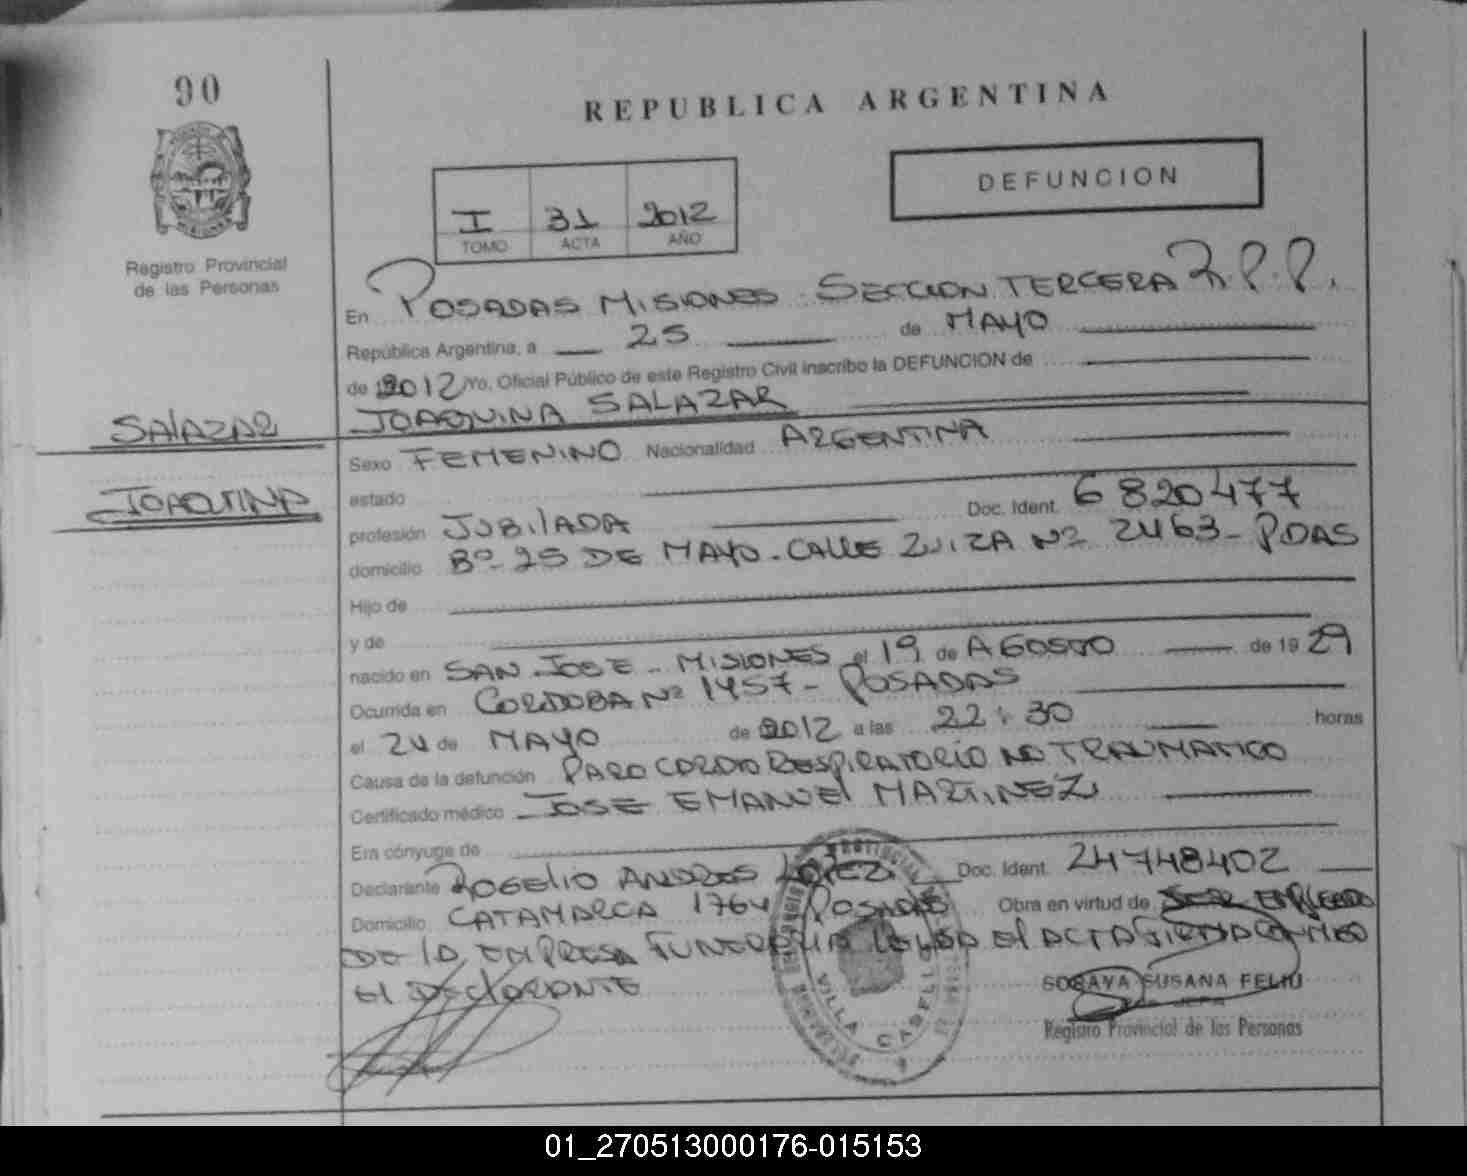 90
REPUBLICA ARGENTINA
DEFUNCION
I 31 2012
TOMO ACTA AÑO
Registro Provincial
de las Personas
En POSADAS MISIONES - SECCION TERCERA R.P.P.
República Argentina, a 25 de MAYO
de 2012 /Yo, Oficial Público de este Registro Civil inscribo la DEFUNCION de
SALAZAR
JOAQUINA SALAZAR
Sexo FEMENINO Nacionalidad ARGENTINA
JOAQUINA
estado
Doc. Ident. 6820477
profesión JUBILADA
domicilio Bº 25 DE MAYO - CALLE ZUIZA Nº 2463 - PDAS
Hijo de
y de
nacido en SAN JOSE - MISIONES el 19 de AGOSTO de 19 29
Ocurrida en CORDOBA Nº 1457 - POSADAS
el 24 de MAYO de 2012 a las 22:30 horas
Causa de la defunción PARO CARDIO RESPIRATORIO NO TRAUMATICO
Certificado médico JOSE EMANUEL MARTINEZ
Era cónyuge de
Declarante ROGELIO ANDRES LOPEZ Doc. Ident. 24748402
Domicilio CATAMARCA 1764 POSADAS Obra en virtud de SER EMPLEADO
DE LA EMPRESA FUNERARIA LEIDA EL ACTA FIRMA CONMIGO
El DEClARANTE
VILLA CABELLO
SORAYA SUSANA FELIU
Registro Provincial de las Personas
01_270513000176-015153